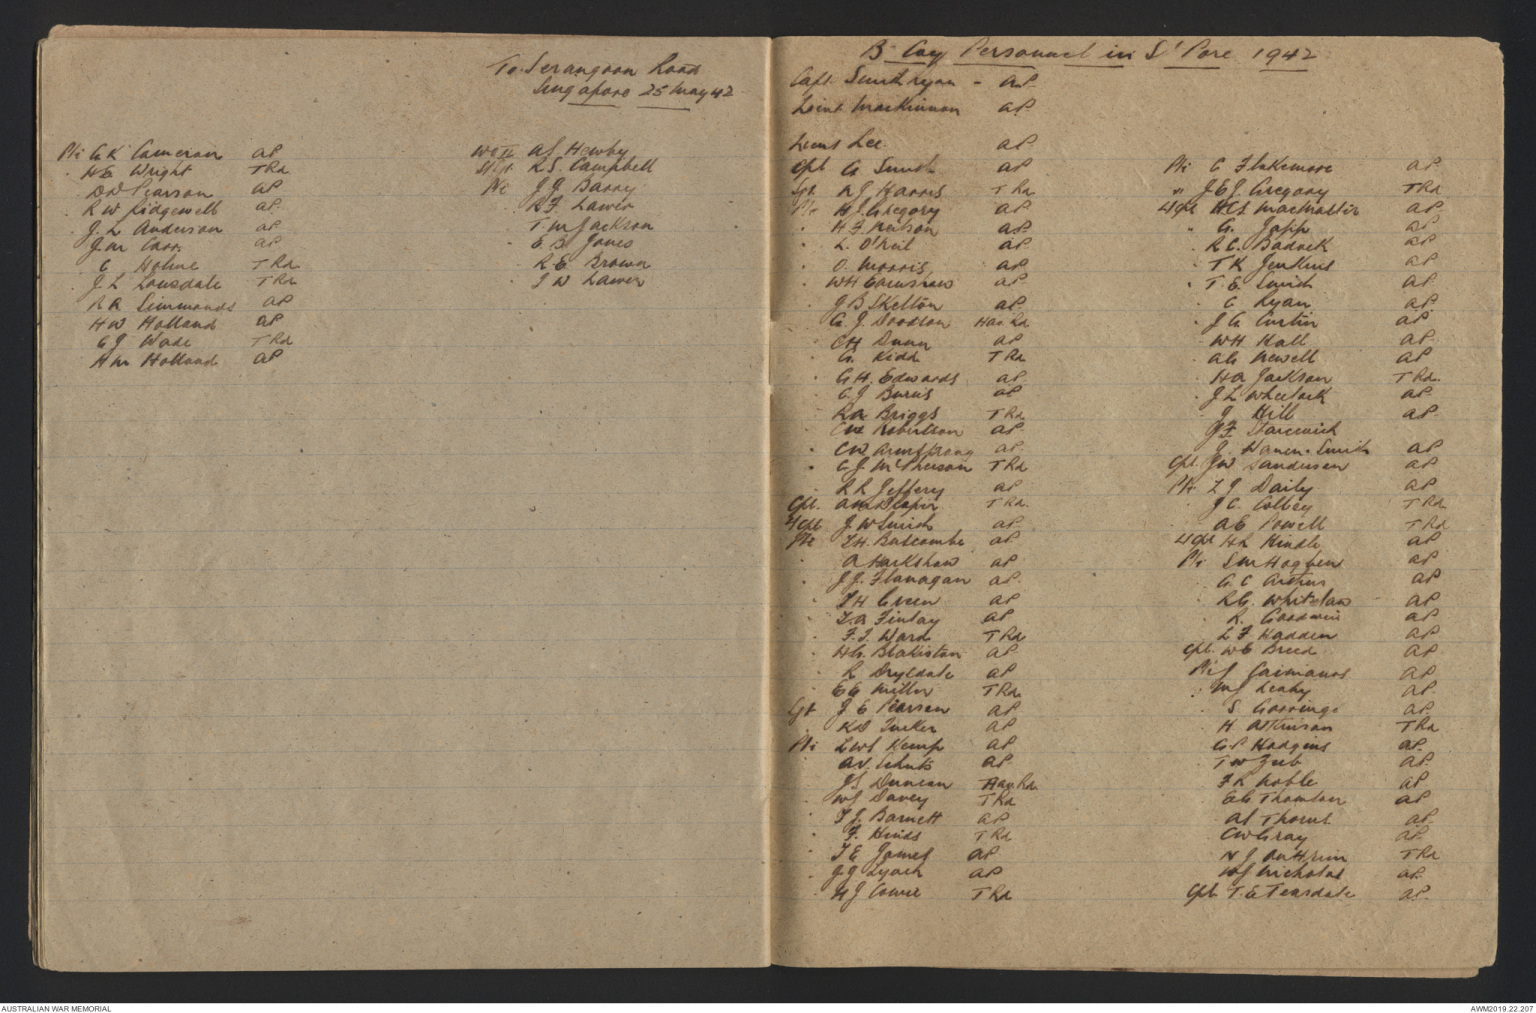 To Serangoon Road
Singapore 25 May 42
Pte G K Cameron AP
" H E Wright T Rd
D W Pearson AP
" R W Ridgewell AP
" J L Anderson AP
" J M Carr AP
" C Holme T Rd
" J L Lonsdale T Rd
" R R Simmonds AP
" H W Holland AP
" C J Wade T Rd
" H M Holland AP
WO II A S Hewby
S/Sgt R S. Campbell
Pte J J Barry
" R F Lawer
" T M Jackson
" E B Jones
" R E Brown
" J W Lawer
B Coy Personnel in S'Pore 1942
Capt. Smith Ryan - AP
Lieut MacKinnon AP
Lieut Lee AP
Cpl G Smith AP
Sgt. R J Harris T Rd
Pte H J Gregory AP
" H F Nelson AP
" L. O'Neil AP
" O. Morris AP
" W H AP
" J B Skelton AP
" G. J. Dodson Hav Rd
" C H Dunn AP
" G. Kidd T Rd
" G H. Edwards AP
" C. J Burns AP
" R A Briggs T Rd
" Robertson AP
" C W Armstrong AP
" C J McPherson T Rd
" R R Jeffery AP
Cpl. T Rd
L/Cpl J W Smith AP
Pte F H. Buscombe AP
" A Harkshaw AP
" J J. Flanagan AP
" F H Green AP
" F. A Finlay AP
" F. J. Ward T Rd
" H G. Blakiston AP
" R Drysdale AP
" E E Miller T Rd
Sgt J E Pearson AP
" K S Tucker AP
Pte L W S Kemp AP
" A V. Schutz AP
" J S Duncan Hav Rd
" W J Davey T Rd
" T J. Barnett AP
" F. Hinds T Rd
" T E James AP
" J J Lynch AP
" H J Cowie T Rd
Pte C Flakemore AP
" J E J. Gregory T Rd
L/Cpl H C S MacMaster AP
" G. Japp AP
" R C. Badcock AP
" T K Jenkins AP
" T. E Smith AP
" C Ryan AP
" J G Curtin AP
" W H Hall AP
" A G Newell AP
" H A Jackson T Rd.
" J L Wheelock AP
" J Hill AP
" J F
" J. Haven-Smith AP
Cpl. J W Sanderson AP
Pte L J Daily AP
J C. Colbey T Rd
" A C Powell T Rd
L/Cpl H R Hindle AP
Pte S M Hogben AP
G C Arthur AP
" R G. Whitelaw AP
" R. Goodwin AP
" L F Hadden AP
Cpl. W E Breed AP
Pte J Gaimanos AP
" M J Leahy AP
" S Gorringe AP
" H Atkinson T Rd
" G P Hodgins AP
" T W Jub AP
" F R Noble AP
" E G Thornton AP
" A J Thorne AP
" C W Gray AP
" N J T Rd
" W J Nicholas AP
Cpl T. E Teasdale AP
AUSTRALIAN WAR MEMORIAL
AWM2019.22.207